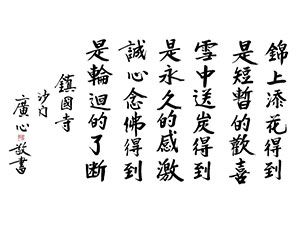 錦上添花得到
是短暫的歡喜
雪中送炭得到
是永久的感激
誠心念佛得到
是輪迴的了断
鎮國寺
沙門
廣心敬書